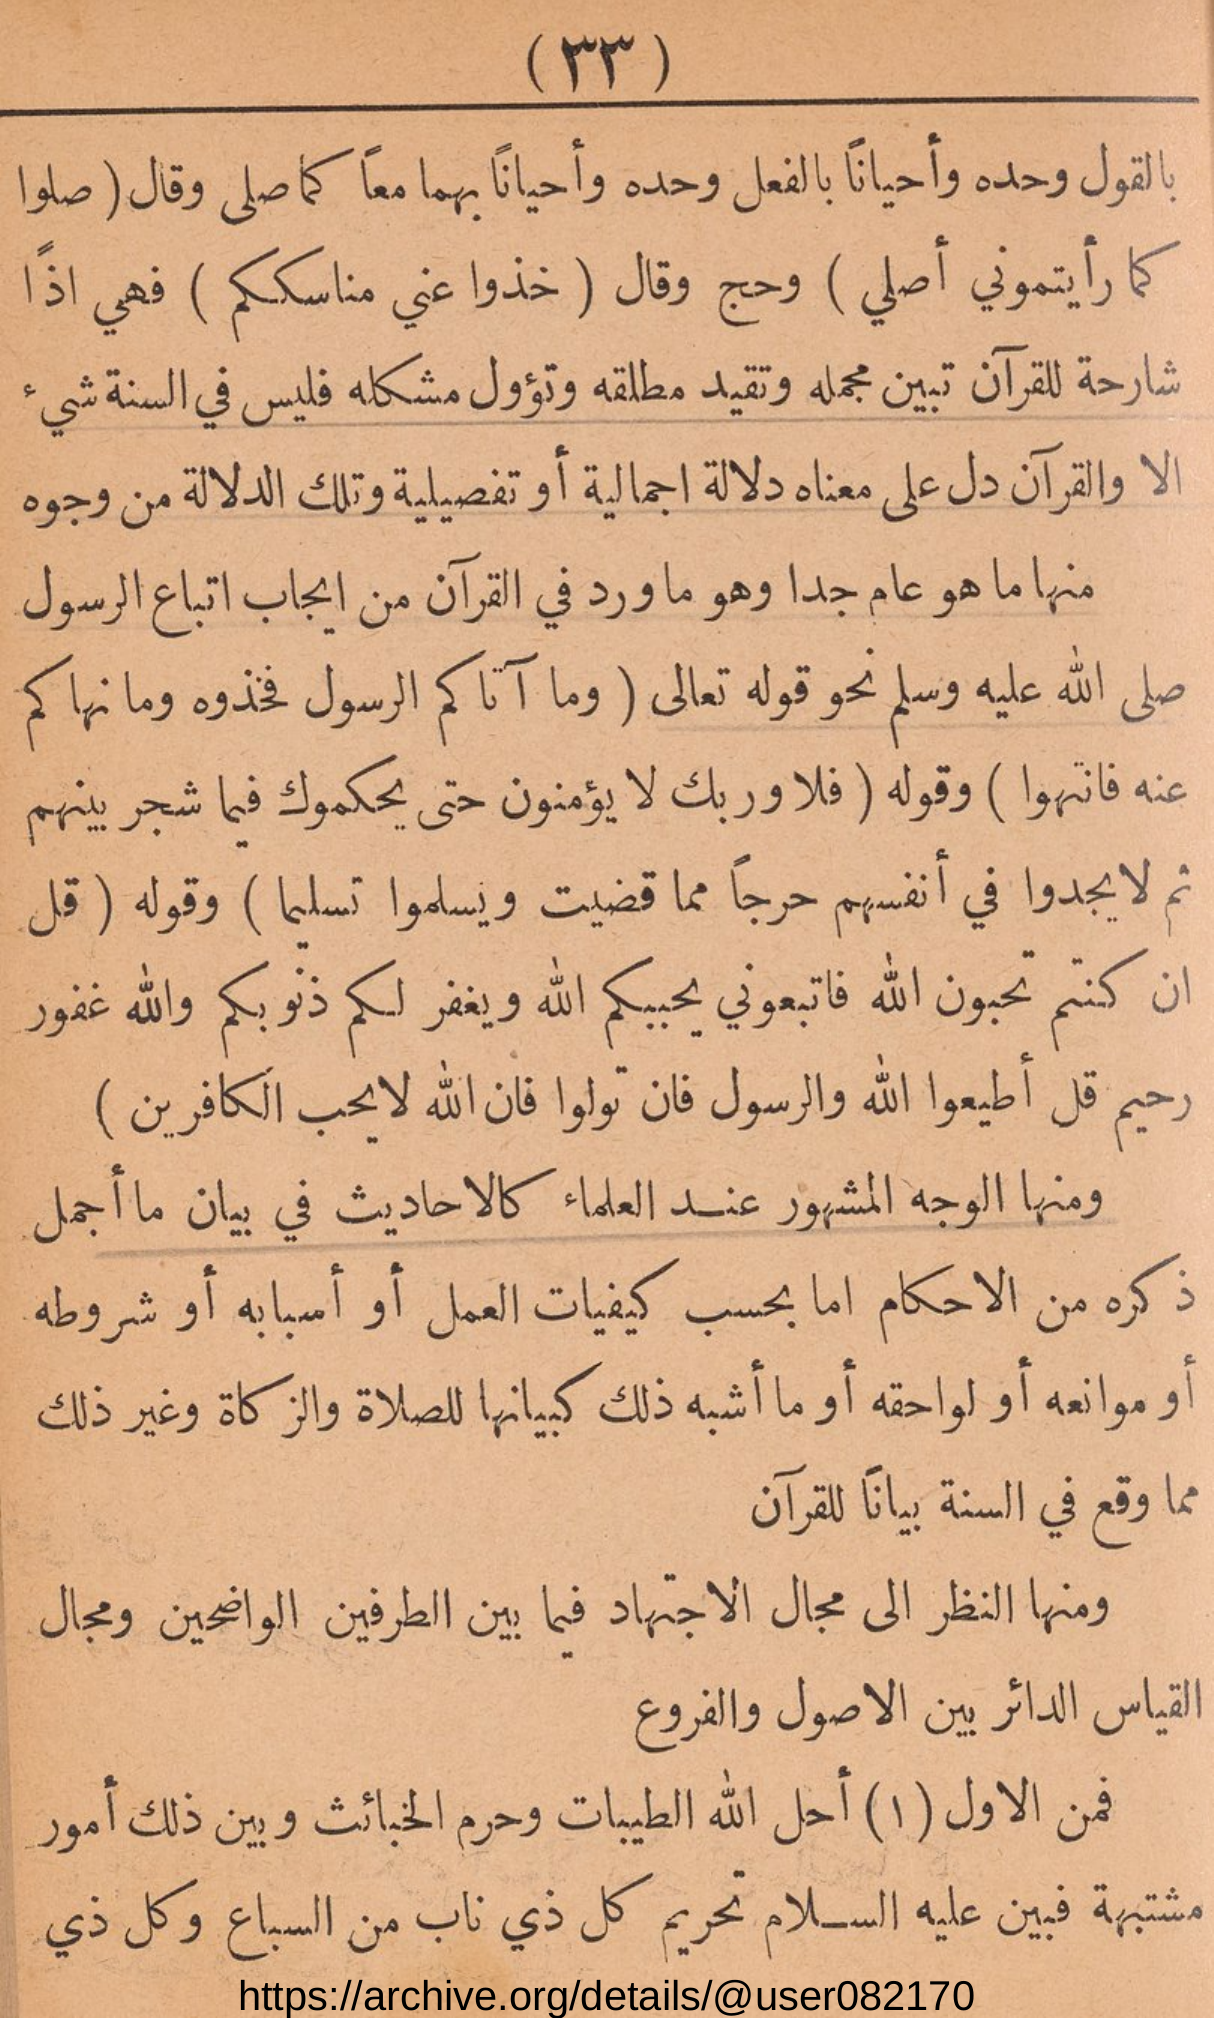 ( ٣٣ )
بالقول وحده وأحيانًا بالفعل وحده وأحيانًا بهما معاً كما صلى وقال ( صلوا
كما رأيتموني أصلي ) وحج وقال ( خذوا عني مناسككم ) فهي اذًا
شارحة للقرآن تبين مجمله وتقيد مطلقه وتؤول مشكله فليس في السنة شيء
الا والقرآن دل على معناه دلالة اجمالية أو تفصيلية وتلك الدلالة من وجوه
منها ما هو عام جدا وهو ما ورد في القرآن من ايجاب اتباع الرسول
صلى الله عليه وسلم نحو قوله تعالى ( وما آتاكم الرسول فخذوه وما نهاكم
عنه فانتهوا ) وقوله ( فلا وربك لا يؤمنون حتى يحكموك فيما شجر بينهم
ثم لا يجدوا في أنفسهم حرجاً مما قضيت ويسلموا تسليما ) وقوله ( قل
ان كنتم تحبون الله فاتبعوني يحببكم الله ويغفر لكم ذنوبكم والله غفور
رحيم قل أطيعوا الله والرسول فان تولوا فان الله لا يحب الكافرين )
ومنها الوجه المشهور عنـد العلماء كالاحاديث في بيان ما أجمل
ذكره من الاحكام اما بحسب كيفيات العمل أو أسبابه أو شروطه
أو موانعه أو لواحقه أو ما أشبه ذلك كبيانها للصلاة والزكاة وغير ذلك
مما وقع في السنة بيانًا للقرآن
ومنها النظر الى مجال الاجتهاد فيما بين الطرفين الواضحين ومجال
القياس الدائر بين الاصول والفروع
فمن الاول (١) أحل الله الطيبات وحرم الخبائث وبين ذلك أمور
مشتبهة فبين عليه السـلام تحريم كل ذي ناب من السباع وكل ذي
https://archive.org/details/@user082170